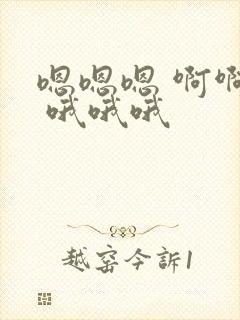 嗯嗯嗯 啊啊
哦哦哦
越窑今訴1